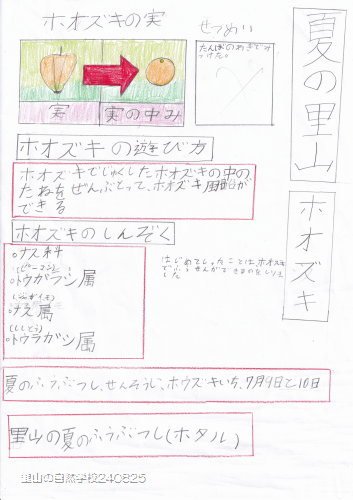 夏の里山
ホオズキ
ホオズキの実
実
実の中み
せつめい
たんぼのわきでみ
つけた。
ホオズキの遊び方
ホオズキでじゅくしたホオズキの中の、
たねをぜんぶとって、ホオズキ
ができる
ホオズキのしんぞく
ナス科
(ピーマン)
トウガラシ属
(ジャガイモ)
ナス属
(ししとう)
トウラガシ属
はじめてしったことは、ホオズキ
でふうせんができるのをしりま
した
夏のふうぶつし、せんそうじ、ホウズキいち、7月9日と10日
里山の夏のふうぶつし(ホタル)
里山の自然学校240825